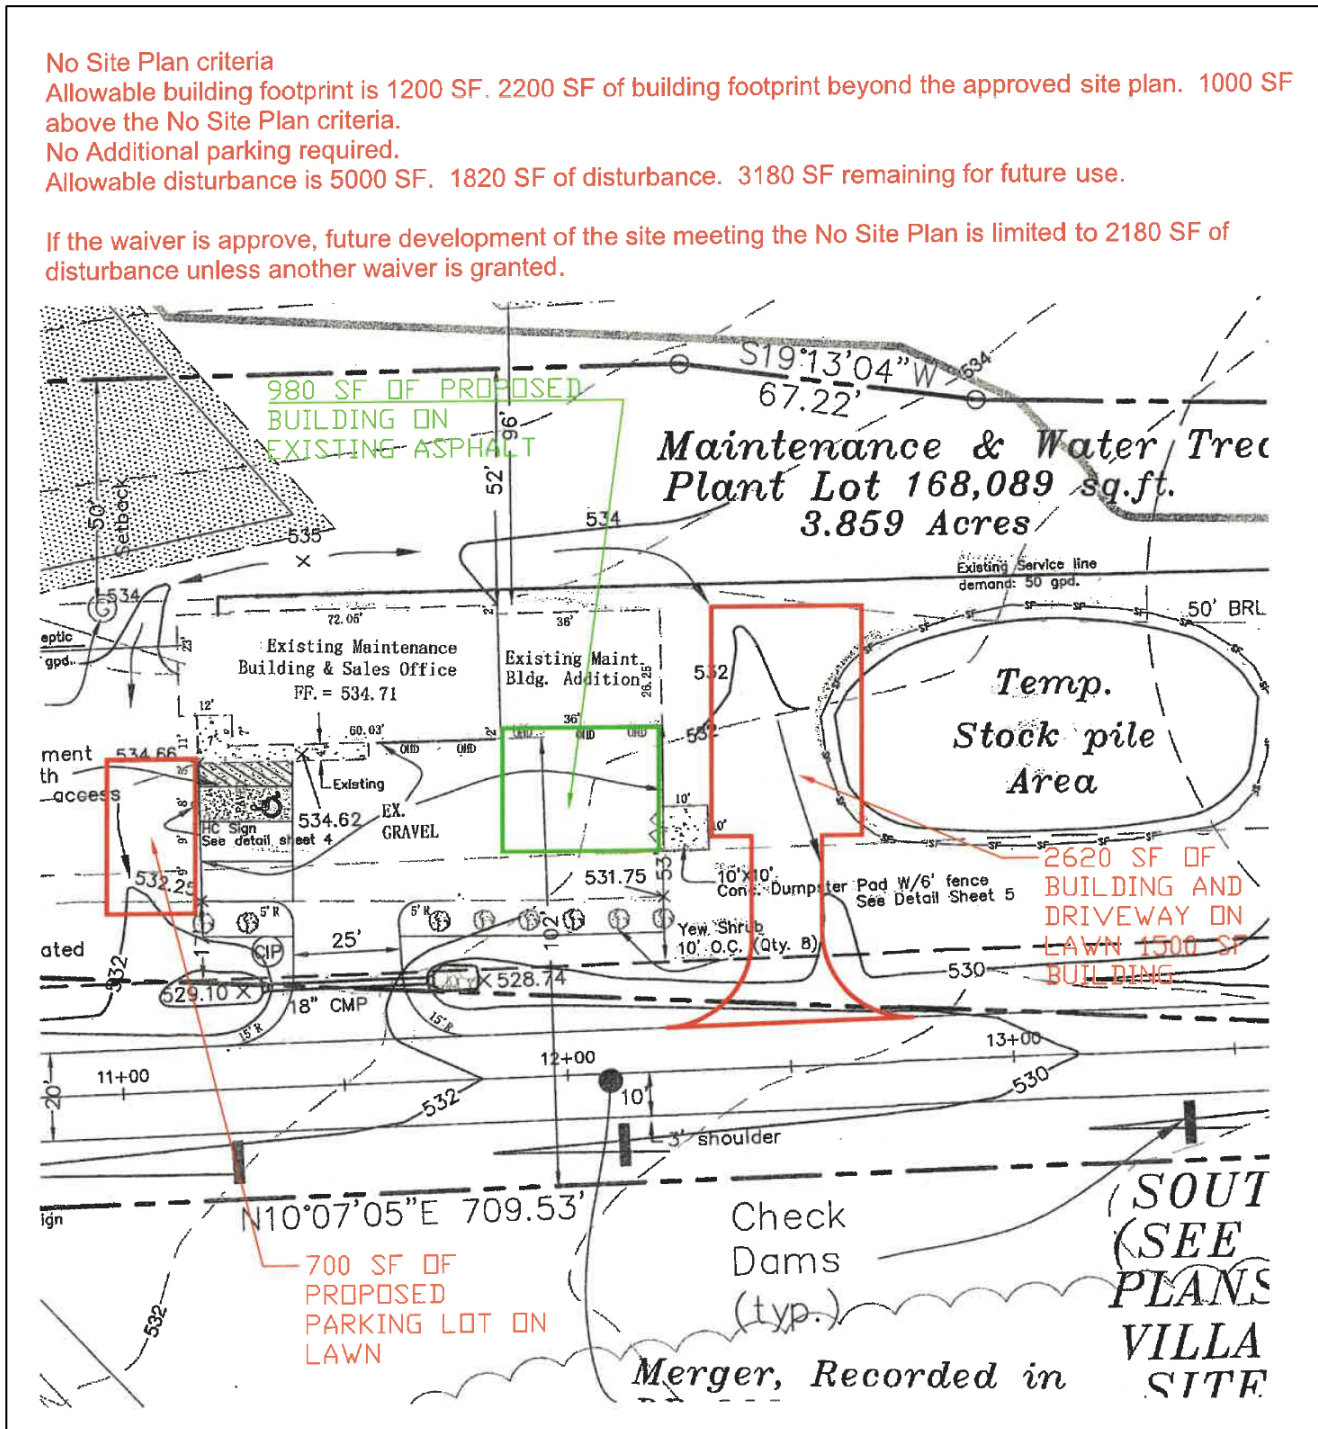 No Site Plan criteria
Allowable building footprint is 1200 SF. 2200 SF of building footprint beyond the approved site plan. 1000 SF
above the No Site Plan criteria.
No Additional parking required.
Allowable disturbance is 5000 SF. 1820 SF of disturbance. 3180 SF remaining for future use.
If the waiver is approve, future development of the site meeting the No Site Plan is limited to 2180 SF of
disturbance unless another waiver is granted.
S19°13'04"W
67.22'
534
980 SF OF PROPOSED
BUILDING ON
EXISTING ASPHALT
96'
52'
50'
Setback
Maintenance & Water Trea
Plant Lot 168,089 sq.ft.
3.859 Acres
534
535
Existing Service line
demand: 50 gpd.
534
50' BRL
SF
eptic
gpd.
72.05'
2'
36'
23'
Existing Maintenance
Building & Sales Office
FF. = 534.71
Existing Maint.
Bldg. Addition
26.25'
532
Temp.
Stock pile
Area
12'
7'
11'
60.03'
2'
36'
OHD OHD OHD OHD OHD
532
ment
th
access
534.66
Existing
EX.
GRAVEL
534.62
HC Sign
See detail sheet 4
8'
9'
9'
10'
10'
10'x10'
Conc. Dumpster Pad W/6' fence
See Detail Sheet 5
2620 SF OF
BUILDING AND
DRIVEWAY ON
LAWN 1500 SF
BUILDING
532.25
531.75
53
5'R
5'R
25'
102'
17'
Yew Shrub
10' O.C. (Qty. 8)
ated
CIP
532
529.10
18" CMP
528.74
530
15'R
15'R
20'
11+00
12+00
13+00
10'
532
530
3' shoulder
ign
N10°07'05"E 709.53'
Check
Dams
(typ.)
SOUT
(SEE
PLANS
VILLA
SITE
700 SF OF
PROPOSED
PARKING LOT ON
LAWN
532
Merger, Recorded in